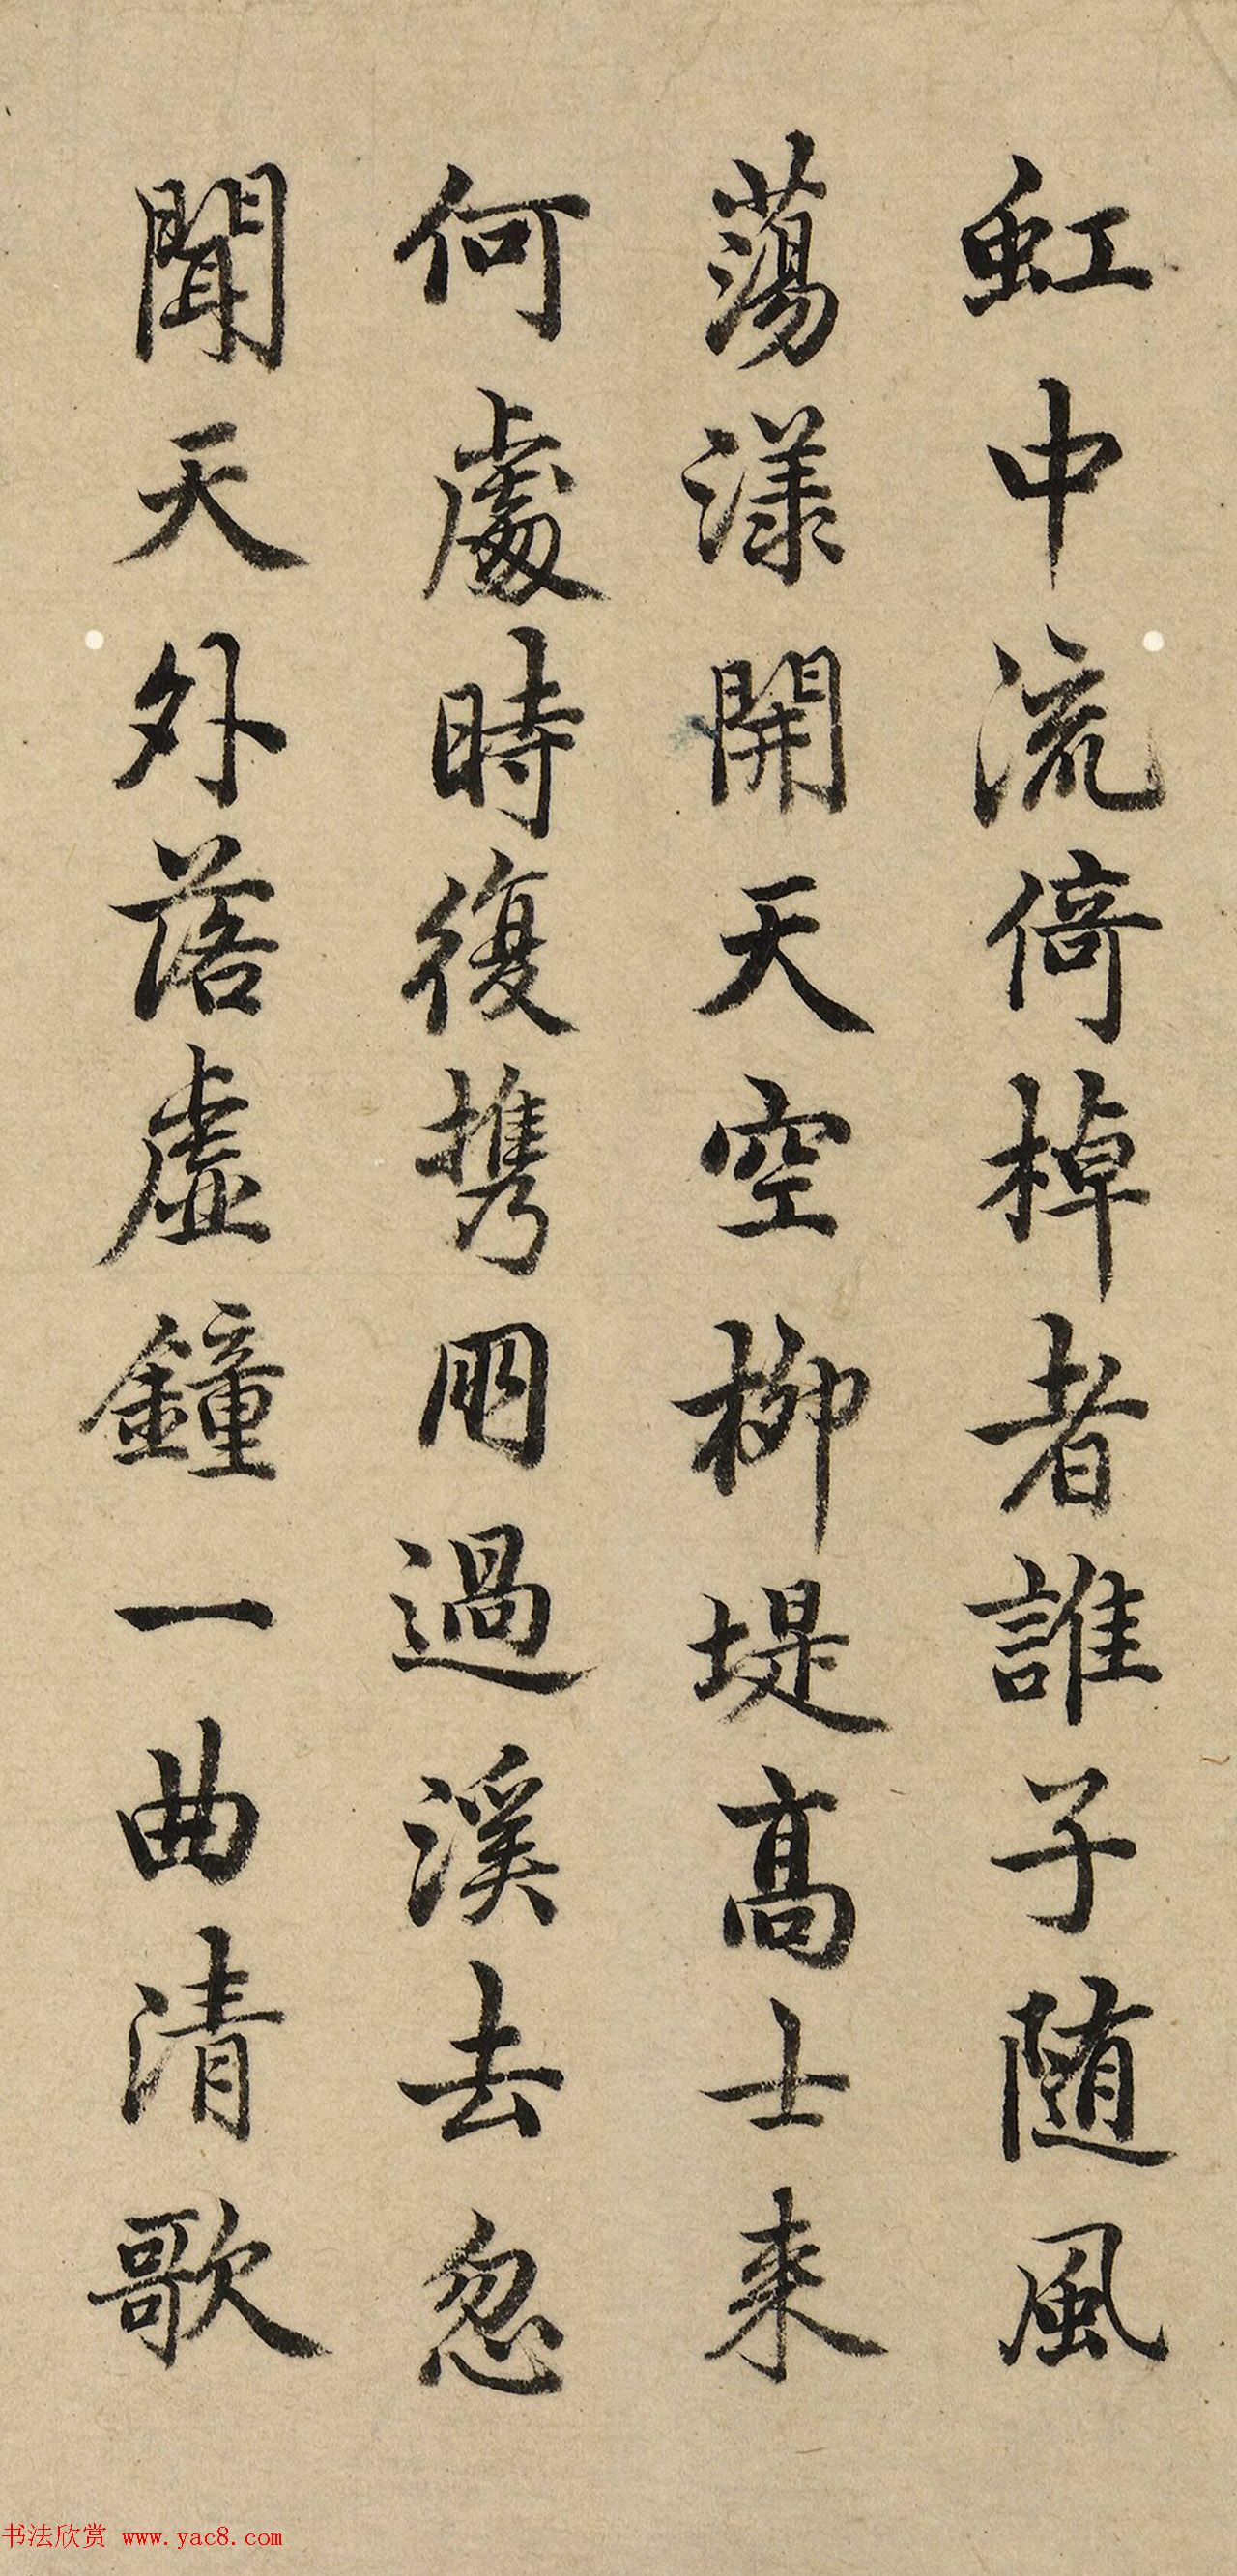 虹中流倚棹者誰子随風
蕩漾開天空柳堤高士来
何處時復携朋過溪去忽
聞天外落虛鐘一曲清歌
书法欣赏 www.yac8.com